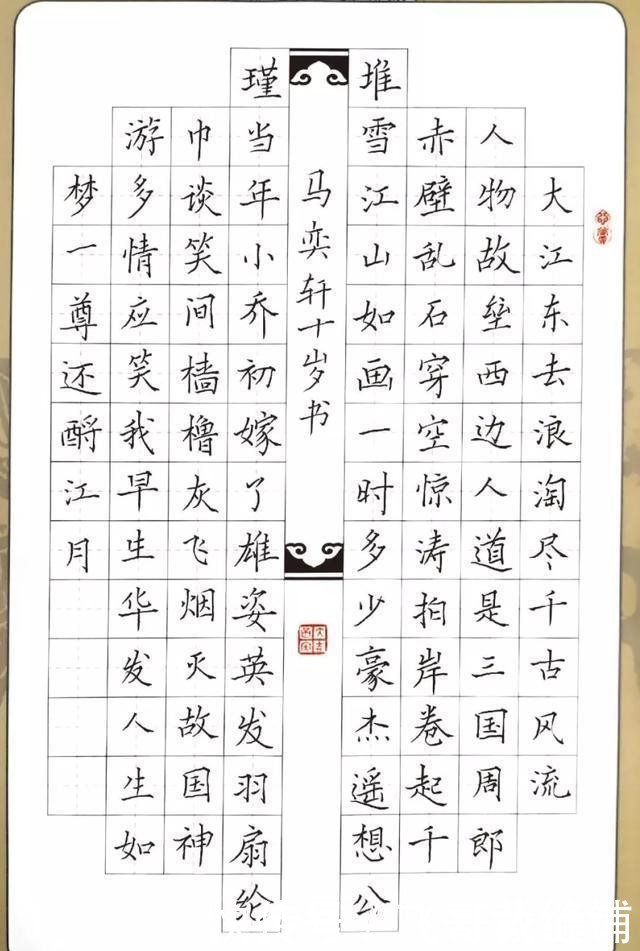 大江东去浪淘尽千古风流
人物故垒西边人道是三国周郎
赤壁乱石穿空惊涛拍岸卷起千
堆雪江山如画一时多少豪杰遥想公
马奕轩十岁书
瑾当年小乔初嫁了雄姿英发羽扇纶
巾谈笑间樯橹灰飞烟灭故国神
游多情应笑我早生华发人生如
梦一尊还酹江月